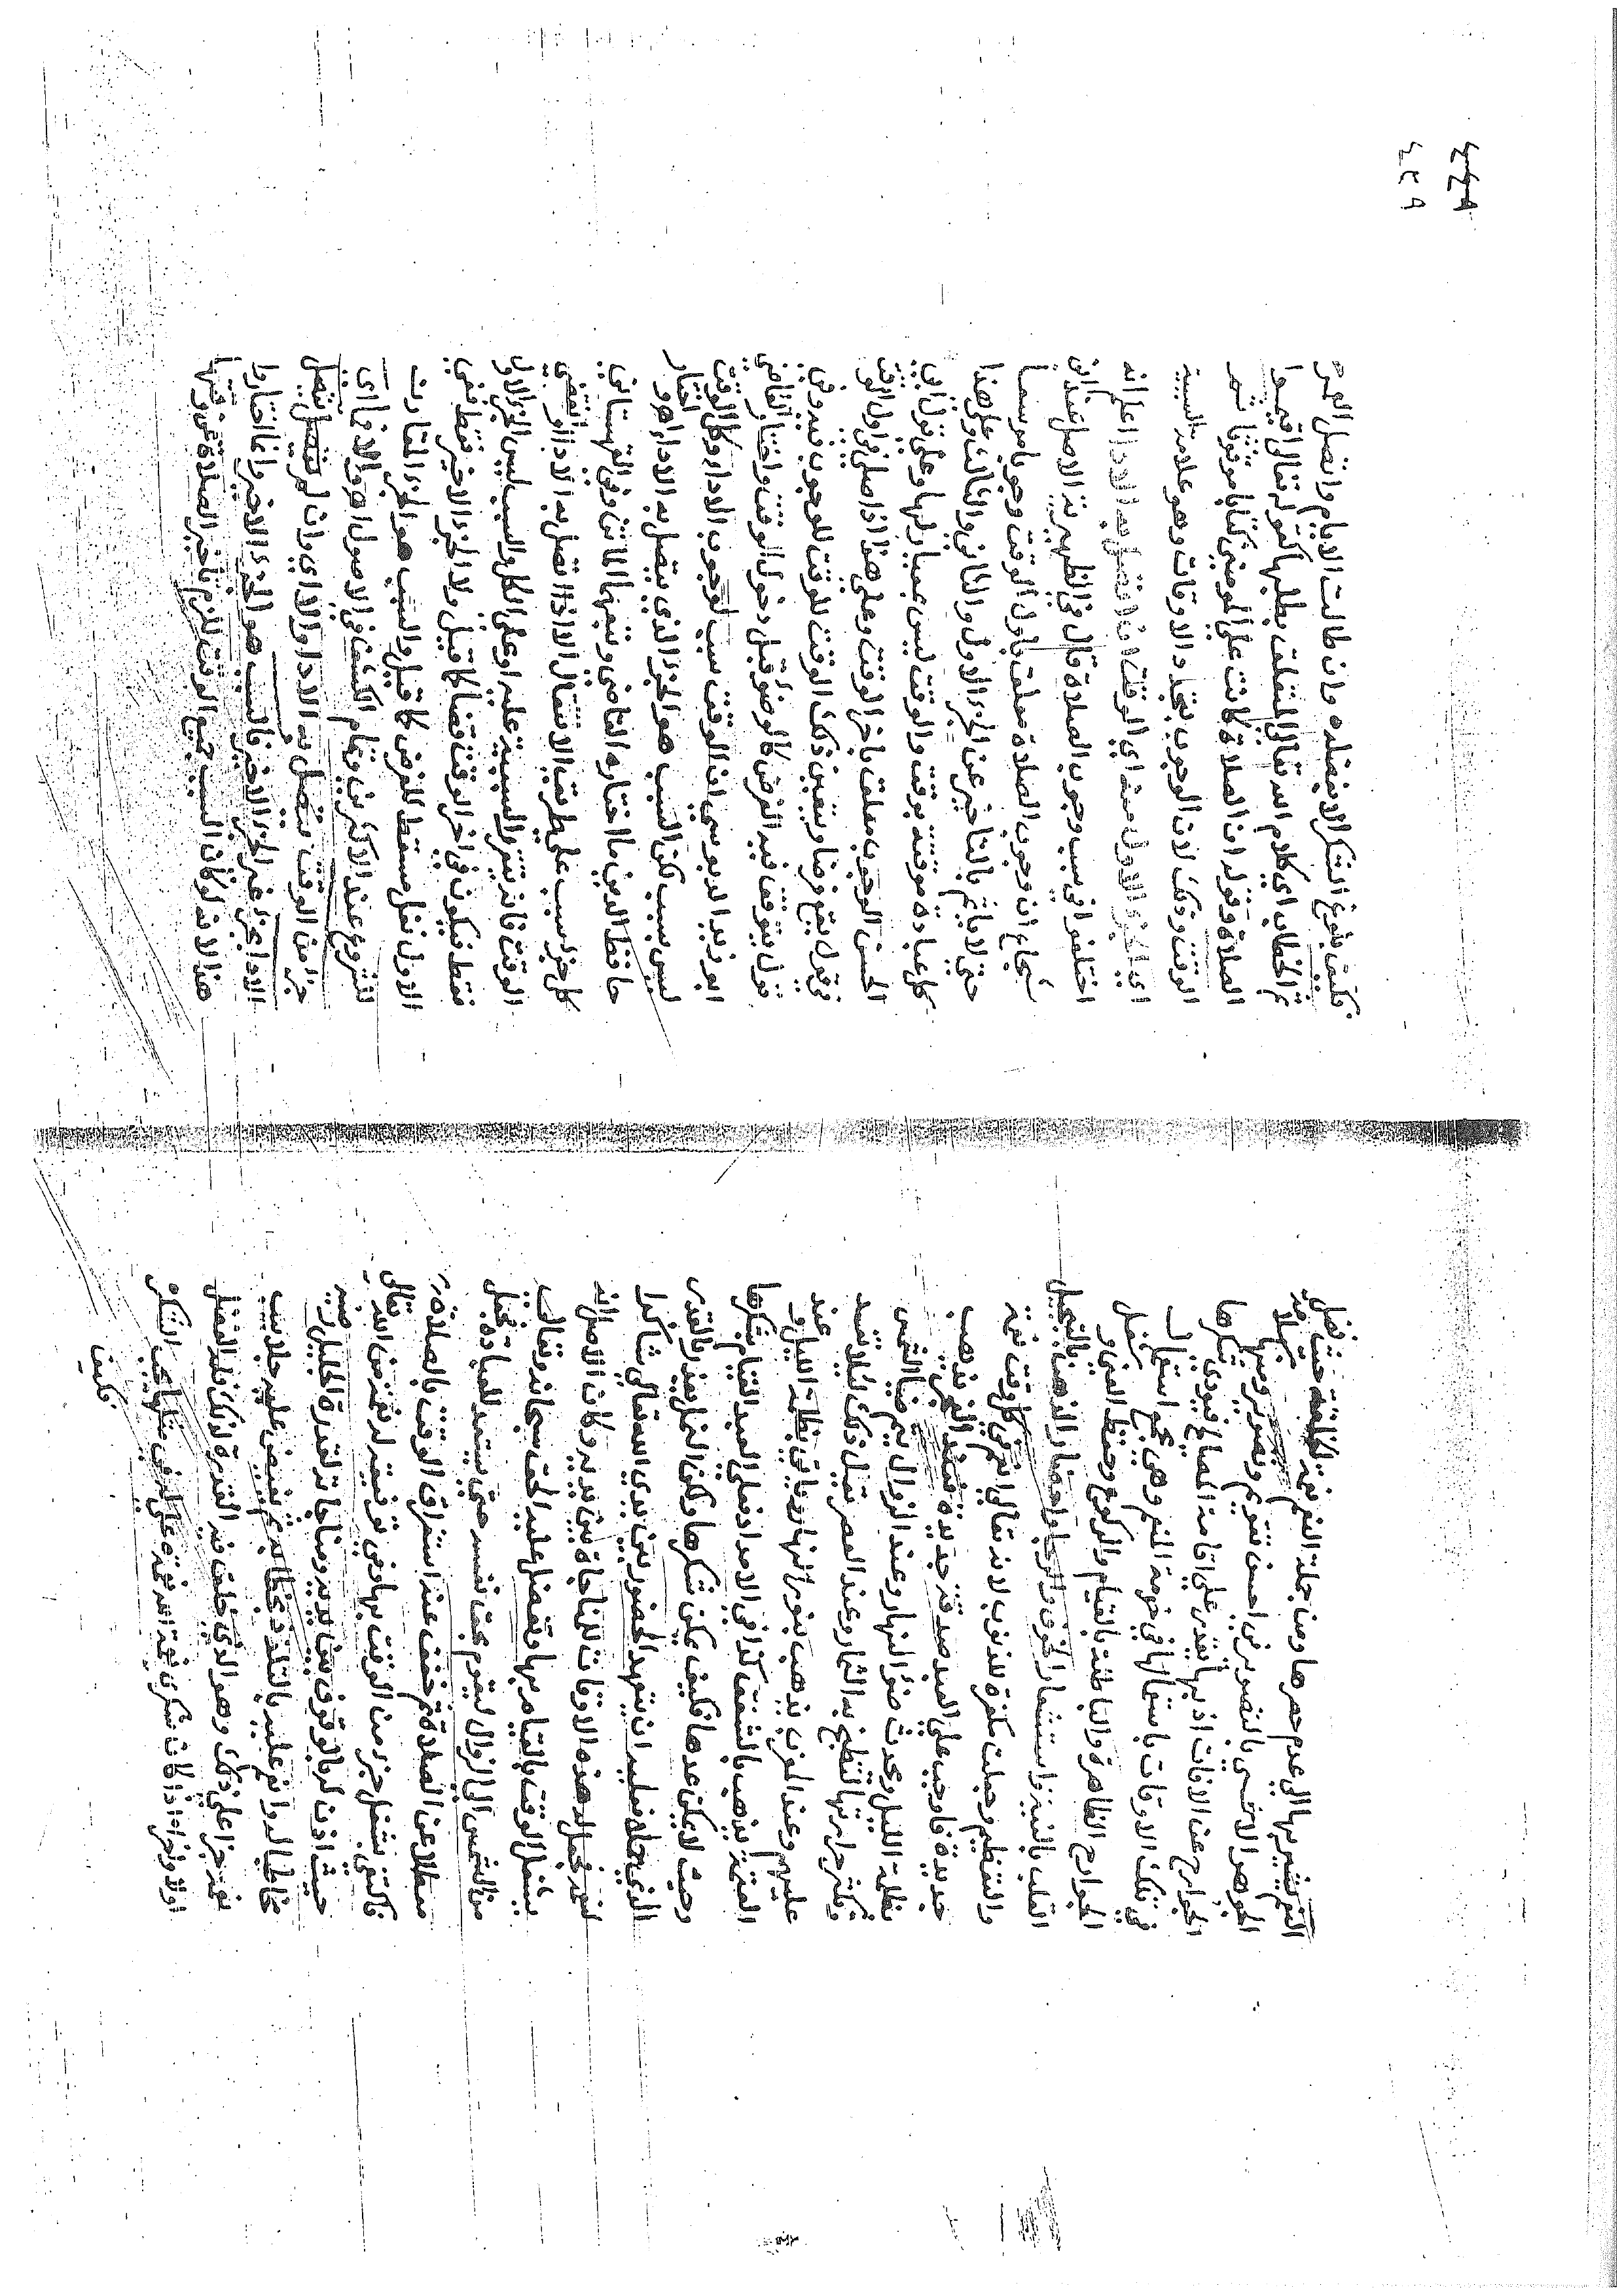 النعم نشير بها الى عدم حصرها ومن جملة النعم نعمة الخلقة حيث تفضل
الجوهر الانفسى بالتصوير فى احسن تقويم وتصوير ومنها سهولة
الجوارح عن الافات اذ بها يقدر على اقامة المصالح فيودى شكرها
فى تلك الاوقات باستعمالها فى خدمة المنعم وهى تجمع استعمال
الجوارح الظاهرة والباطنة بالقيام والركوع وحفظ العين و شغل
القلب بالنية واستشعار الخوف والرجا واحضار الذهن بالتبجيل
والتعظيم وجعلت مكفرة للذنوب لانه تعالى انعم فى كل وقت نعمة
جديدة فاوجب على العبد صدقة جديدة فعند الفجر يذهب
بظلمة الليل ويحدث ضؤ النهار وعند الزوال يعم ضيا الشمس
وتكثر حرارتها لتطبخ به الثمار وعند العصر تميل ذلك ليلا تفسد
عليهم وعند المغرب يذهب بنور النهار وياتى بظلمة الليل و عند
العتمة يذهب بالشفق كذا فى الامداد فعلى العبد القيام بشكرها
وحيث لا يمكن عدها فكيف يمكن شكرها ولكن النحل يعذر بالقدر
الذى يحمله فعليه ان يتعهد الحضور بين يدى الله تعالى شاكرا
لنعمه فجعل له هذه الاوقات للمناجاة بين يديه وكان الاصل انه
يشغل الوقت بالقيام بها وتفضل عليه الحق سبحانه وتعالى
من الشمس الى الزوال ليقوم بحق نفسه حتى يستعد للعبادة فجعل
معطلا عن الصلاة ثم خفف عنه استغراق الوقت بالصلاة و
فاكتفى بشغل جزء من الوقت بها وفى توفيقه له نعمة من الله تعالى
حيث اذن له بالوقوف بين يديه ومناجاته لقدرة الجليل ربه فصيره
مخاطبا له وانعم عليه بالتلذذ بخطابه ثم يفيض عليه جلابيب
نعمة جزاء على ذلك وهو الذى خلق فيه القدرة لذلك فله الفضل
اولا واخرا اذا كان شكرى نعمة الله نعمة على له فى مثلها يجب الشكر
فكيف
فكيف بنوع الشكر الا بفضله وان طالت الايام واتصل العمر
ثم الخطاب اى كلام الله تعالى المتعلق بطلبها كقوله تعالى اقيموا
الصلاة وقوله ان الصلاة كانت على المومنين كتابا موقوتا ثم
الوقت وذلك لان الوجوب يتجدد الاوقات وهو علامة السببية
اى الجزء الاول منه اى الوقت ان اتصل به الادا اعلم انه
اختلفوا فى سبب وجوب الصلاة قال فى الظهيرية الاصل عند ابن
شجاع ان وجوب الصلاة متعلق باول الوقت وجوبا موسعا
حتى لا ياثم بالتاخير عن الجزء الاول والثانى والثالث وعلى هذا
كل عبادة موقتة بوقت والوقت ليس بمعيار لها وعلى قول ابى
الحسن الوجوب متعلق باخر الوقت وعلى هذا اذا صلى فى اول الوقت
فى قول يقع فرضا ويتعين ذلك الوقت للوقت للوجوب فيه وفى
قول يتوقف فيه الفرض كالوضوء قبل دخول الوقت واختار القاضى
ابو زيد الدبوسى ان الوقت سبب لوجوب الاداء وكل الوقت
ليس بسبب لكن السبب هو الجزء الذى يتصل به الاداء وهو اختيار
حافظ الدين ما اختاره القاضى وتبعها الماتن وفى القهستانى
كل جزء سبب على طريق الانتقال الا اذا اتصل به الاداء او انقضى
الوقت فانه تتقرر السببية عليه او على الكل والسبب ليس الجزء الاول
فقط فيكون فى اخر الوقت قضا كما قيل ولا الجزء الاخير فقط ففى
الاول نفل مسقط للفرض كما قيل والسبب هو الجزء المقارن
للشروع عند الاكثرين وتمام الكشف فى الاصول اهـ والا فما اى
جزء من الوقت يتصل به الاداء والا اى وان لم يتصل
الاداء بجزء غير الجزء الاخير فالسبب هو الجزء الاخير وانما اختاروا
هذا لانه لو كان السبب جميع الوقت للزم تاخير الصلاة عن وقتها